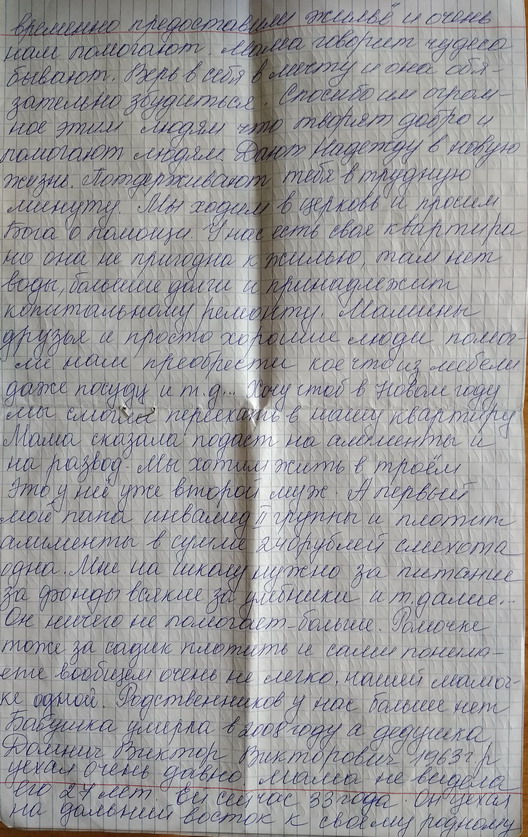 временно предоставили жильё и очень
нам помогают. Мама говорит чудеса
бывают. Верь в себя в мечту и она обя-
зательно збудиться. Спосибо им огром-
ное этим людям что творят добро и
помогают людям. Дают надежду в новую
жизнь. Потдерживают тебя в трудную
минуту. Мы ходим в церковь и просим
Бога о помощи. У нас есть своя квартира
но она не пригодна к жилью, там нет
воды, большие долги и принадлежит
копитальному ремонту. Мамины
друзья и просто хорошие люди помог-
ли нам преобрести кое что из мебели
даже посуду и т.д... Хочу чтоб в Новом году
мы смогли переехать в нашу квартиру
Мама сказала подаст на алименты и
на развод. Мы хотим жить в троём
Это у неё уже второй муж. А первый
мой папа инвалид II группы и плотит
алименты в сумме 240рублей смехота
одна. Мне на школу нужно за питание
за фонды всякие за учебники и т.далие...
Он ничего не помогает больше. Ромочке
тоже за садик плотить и сами понима-
ете вообщем очень не легко нашей мамоч-
ке одной. Родственников у нас больше нет
Бабушка умерла в 2008 году а дедушка
Виктор Викторович 1963г/р
уехал очень давно мама не видела
его 27 лет. Ей сейчас 33 года. Он уехал
на дальний восток к своему родному